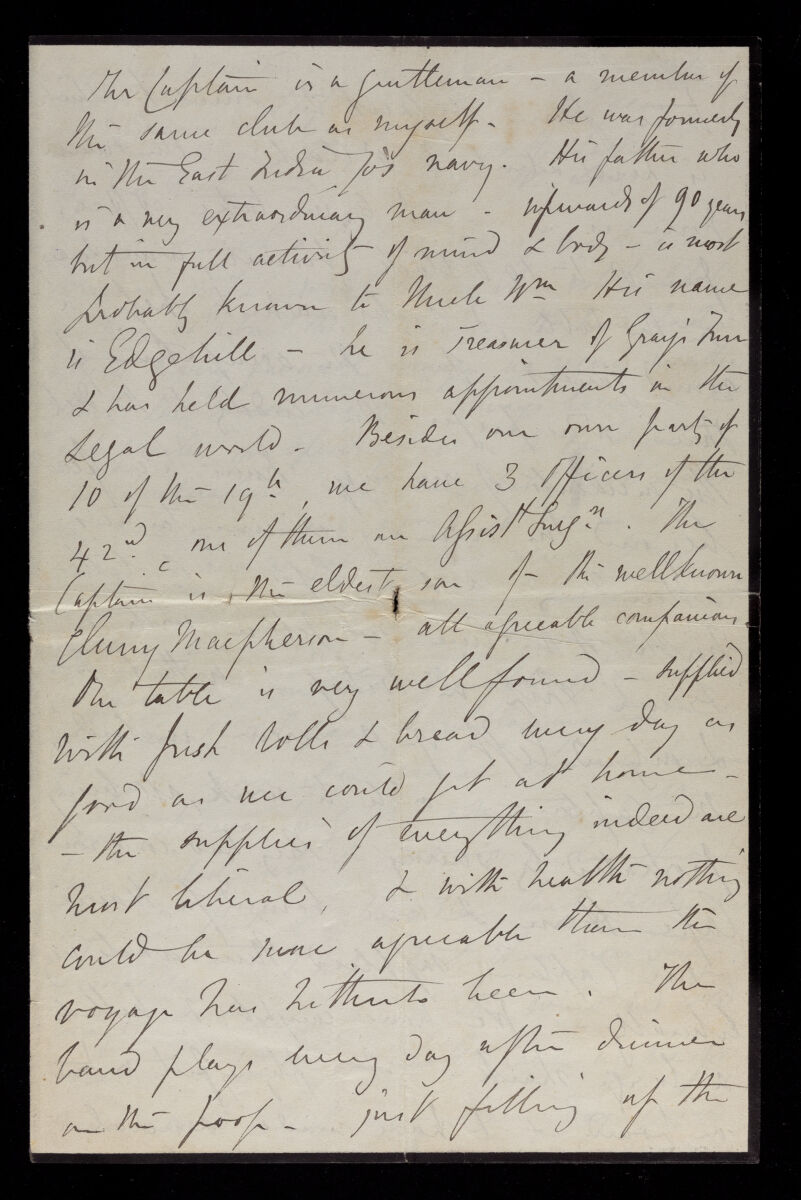 The Captain is a gentleman – a member of
the same club as myself – He was formerly
in the East India Co's navy. His father who
is a very extraordinary man – upwards of 90 years
but in full activity of mind & body – is most
probably known to Uncle Wm His name
is Edgehill – he is Treasurer of Gray's Inn
& has held numerous appointments in the
Legal world. Besides our own party of
10 of the 19th, we have 3 Officers of the
42nd, one of them an Assist Surgn. The
Captain is the eldest son of the wellknown
Cluny Macpherson – all agreeable companions.
Our table is very well found – supplied
with fresh rolls & bread every day as
good as we could get at home –
– the supplies of everything indeed are
most liberal, & with health nothing
could be more agreeable than the
voyage has hitherto been. The
band plays every day after dinner
on the poop – just filling up the